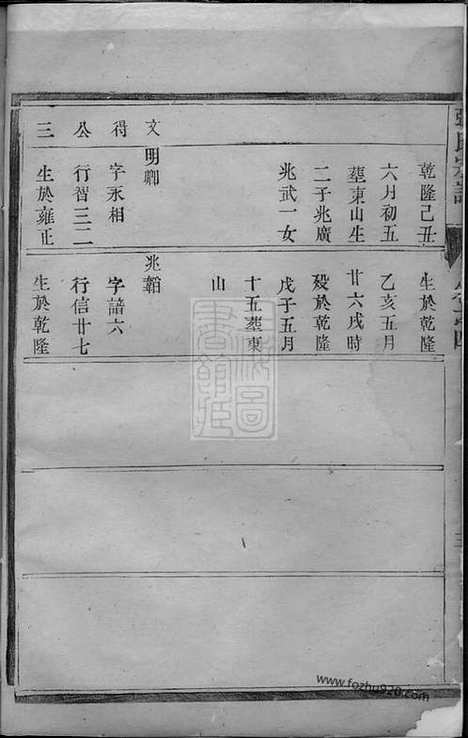 乾隆己丑
六月初五
塟東山生
二子兆廣
兆武一女
文明卿
得字永相
公行智三二
三生於雍正
生於乾隆
乙亥五月
廿六戌時
殁於乾隆
戊子五月
十五塟東
山
兆韜
字諳六
行信廿七
生於乾隆
www.fozhu920.com